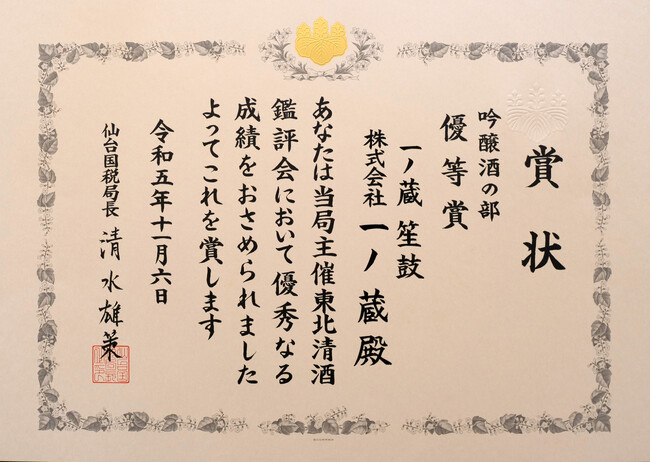 賞状
吟醸酒の部
優等賞
一ノ蔵 笙鼓
株式会社 一ノ蔵殿
あなたは当局主催東北清酒
鑑評会において優秀なる
成績をおさめられました
よってこれを賞します
令和五年十一月六日
仙台国税局長 清水雄策